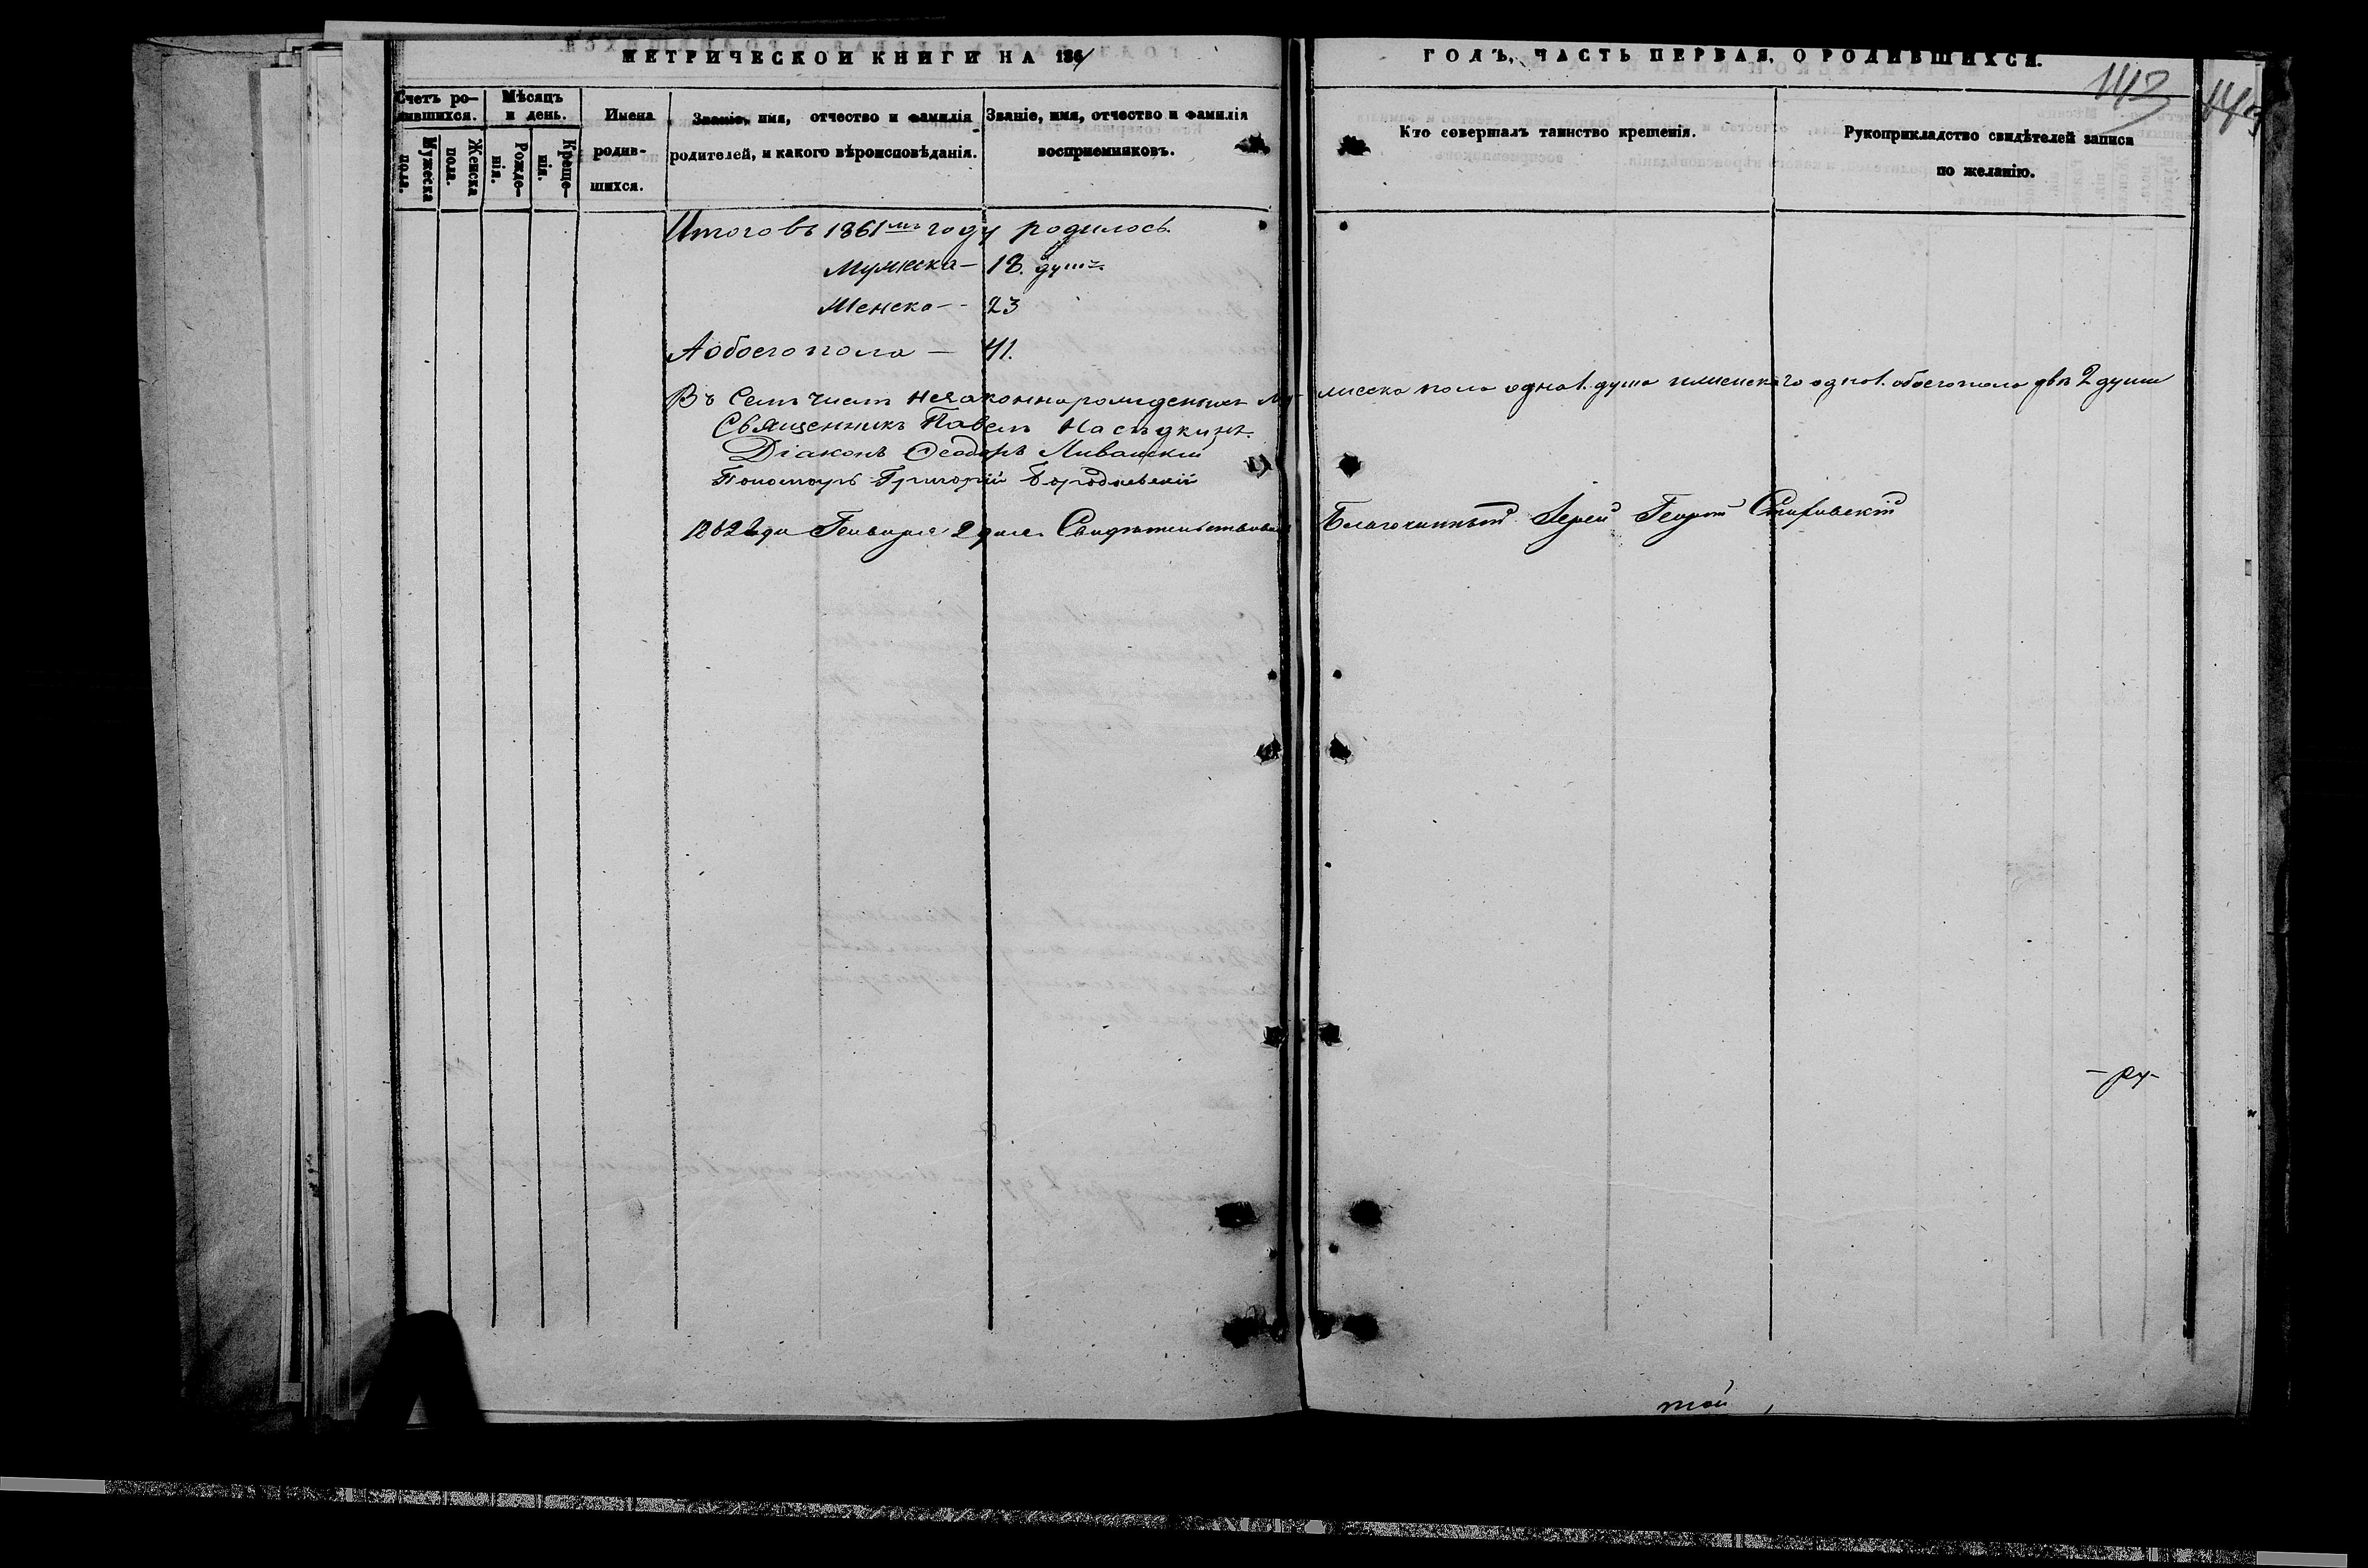 МЕТРИЧЕСКОЙ КНИГИ НА 1861
ГОДЪ, ЧАСТЬ ПЕРВАЯ, О РОДИВШИХСЯ.
143
Счетъ родившихся.
Мужеска пола.
Женска пола.
Мѣсяцъ и день.
Рожденія.
Крещенія.
Имена родившихся.
Званіе, имя, отчество и фамилія родителей, и какого вѣроисповѣданія.
Званіе, имя, отчество и фамилія воспріемниковъ.
Кто совершалъ таинство крещенія.
Рукоприкладство свидѣтелей записи по желанію.
Итого въ 1861мъ году родилось.
Мужеска - 18. душъ
Женска - - 23
А обоего пола - 41.
Въ семъ числѣ незаконнорожденныхъ Мужеска пола одна 1. душа и женскаго одна 1. обоего пола двѣ 2 души
Священникъ Павелъ Насѣдкинъ.
Діаконъ Ѳеодоръ
Пономарь Григорій
1862 года Генваря 2 дня. Свидѣтельствовалъ Благочинный Іерей Георгій